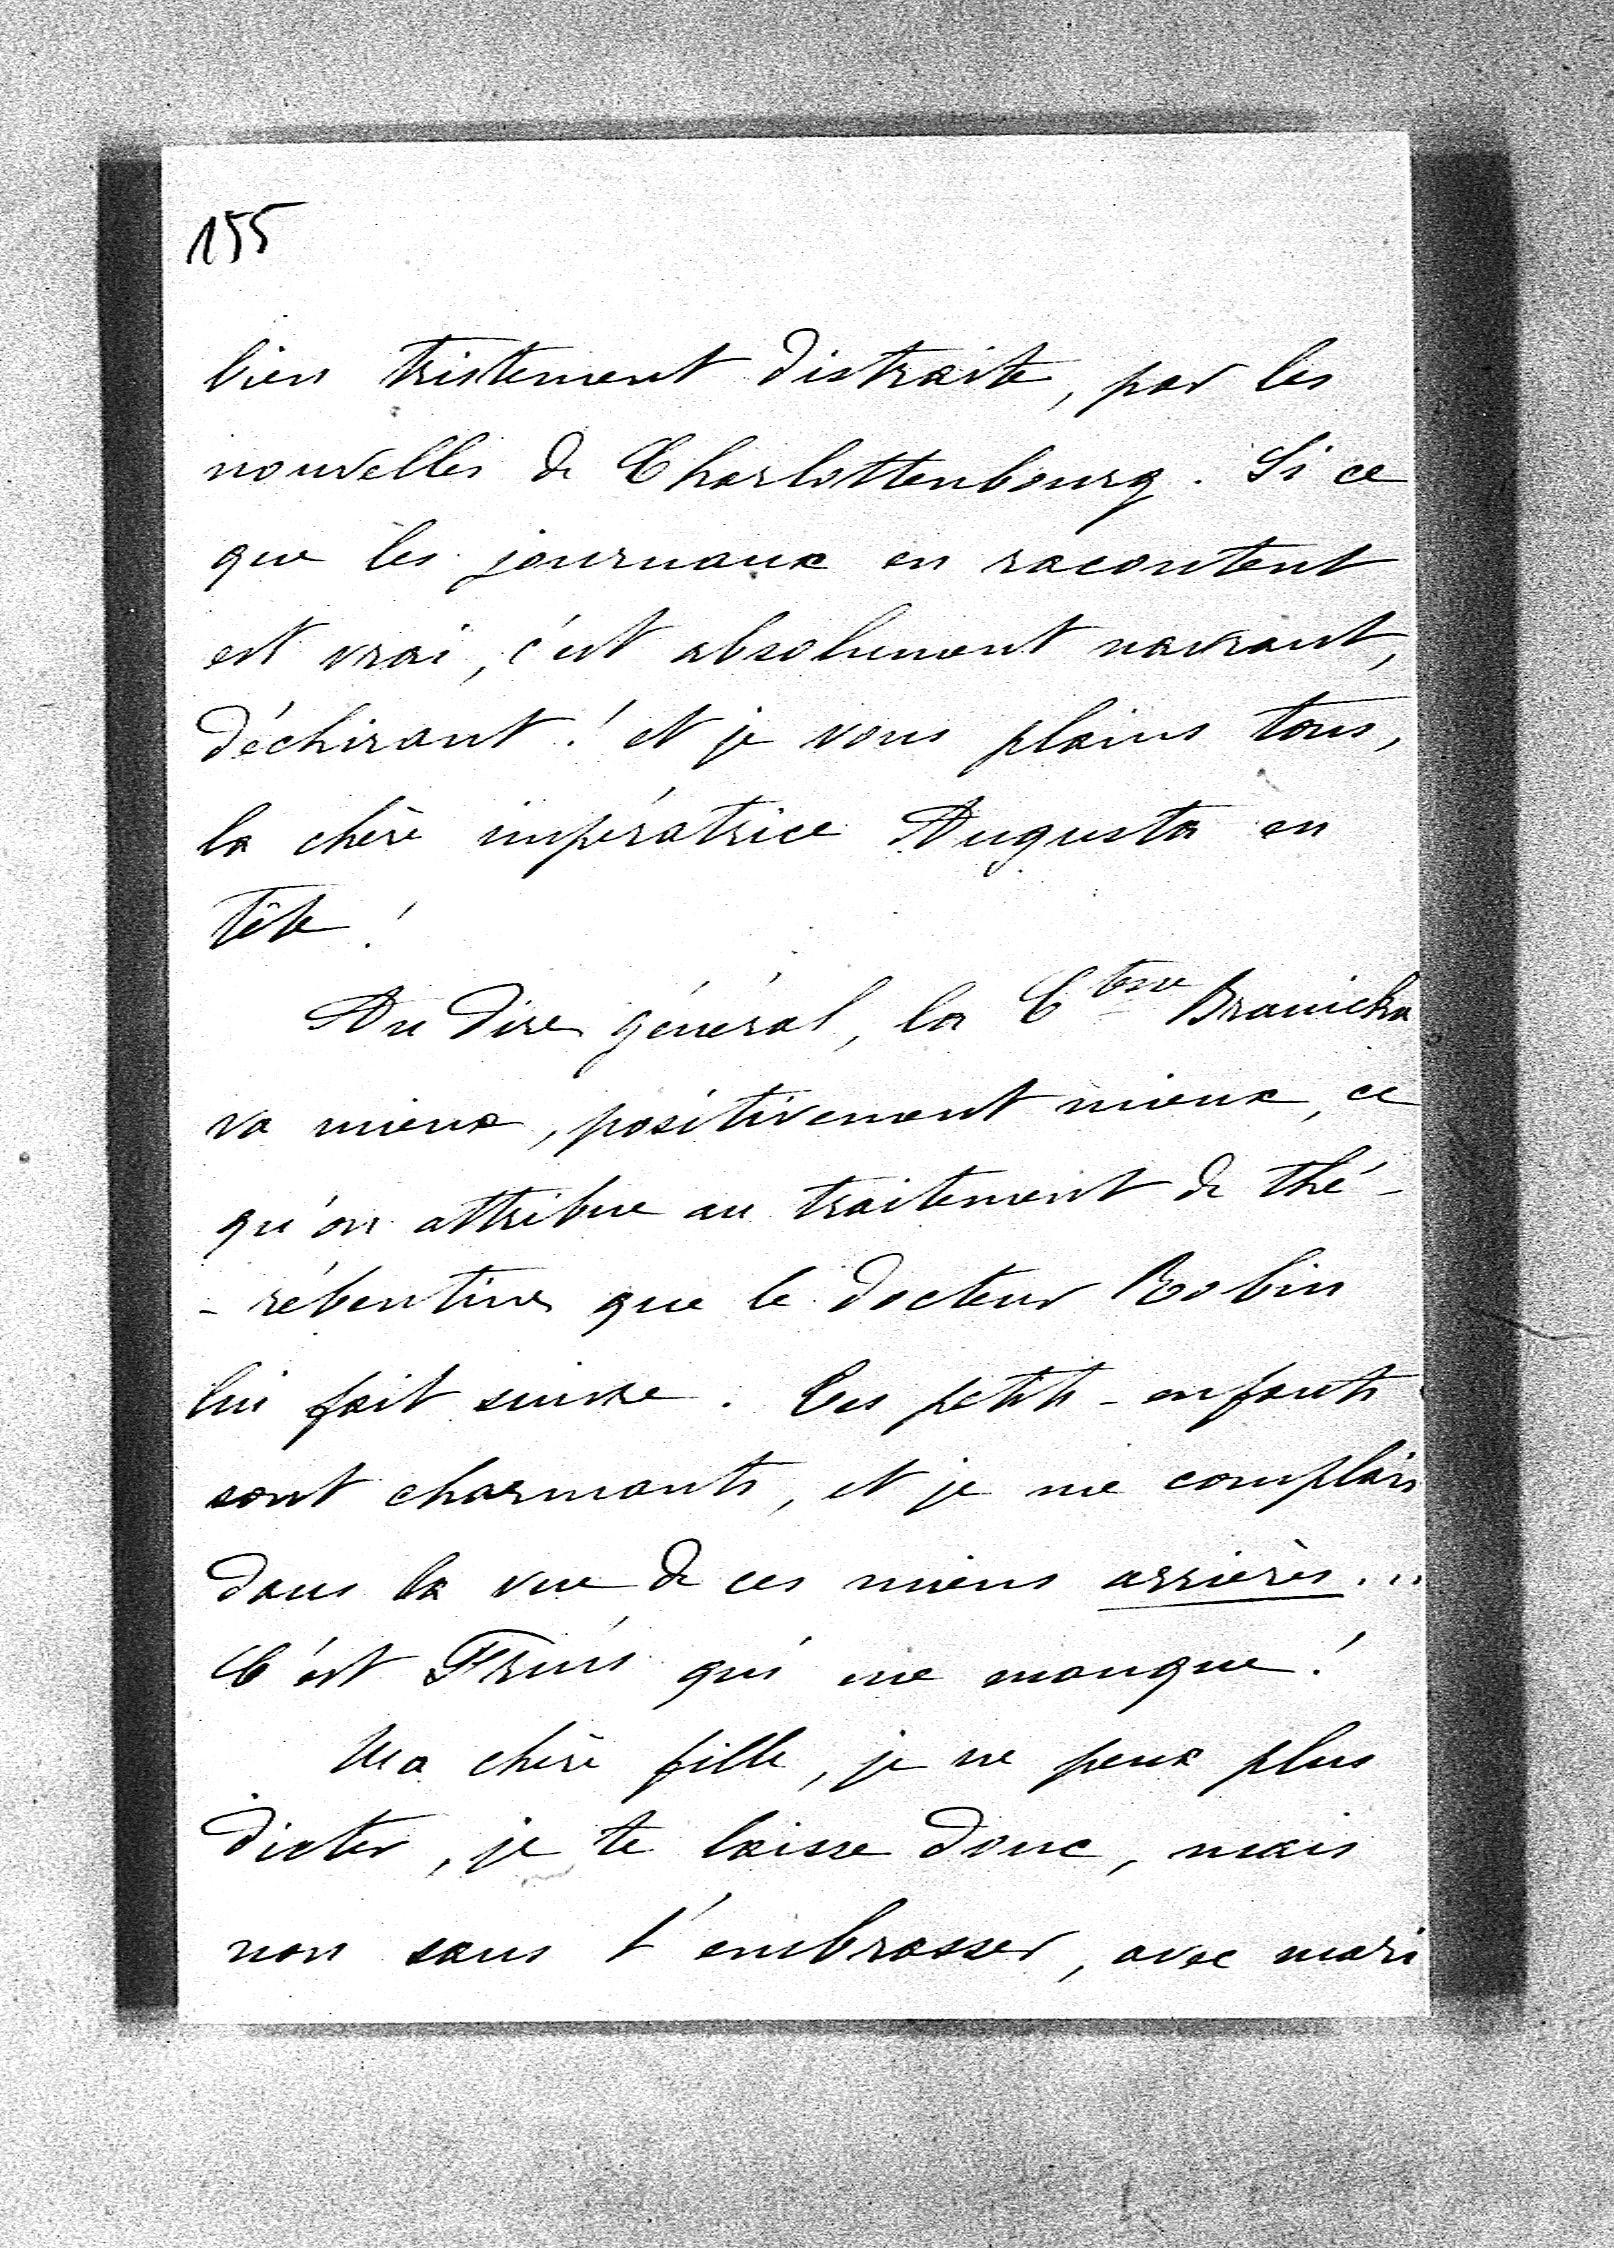 155
bien tristement distraite, par les
nouvelles de Charlottenbourg. Si ce
que les journaux en racontent
est vrai, c'est absolument navrant,
déchirant! et je vous plains tous,
la chère impératrice Augusta en
tête!
Au dire général, la Ctesse Branicka
va mieux, positivement mieux, ce
qu'on attribue au traitement de thé-
-rébentine que le docteur Robin
lui fait suivre. Ces petits-enfants
sont charmants, et je me complais
dans la vue de ces miens arrières...
C'est qui me manque!
Ma chère fille, je ne peux plus
dicter, je te laisse donc, mais
non sans t'embrasser, avec mari